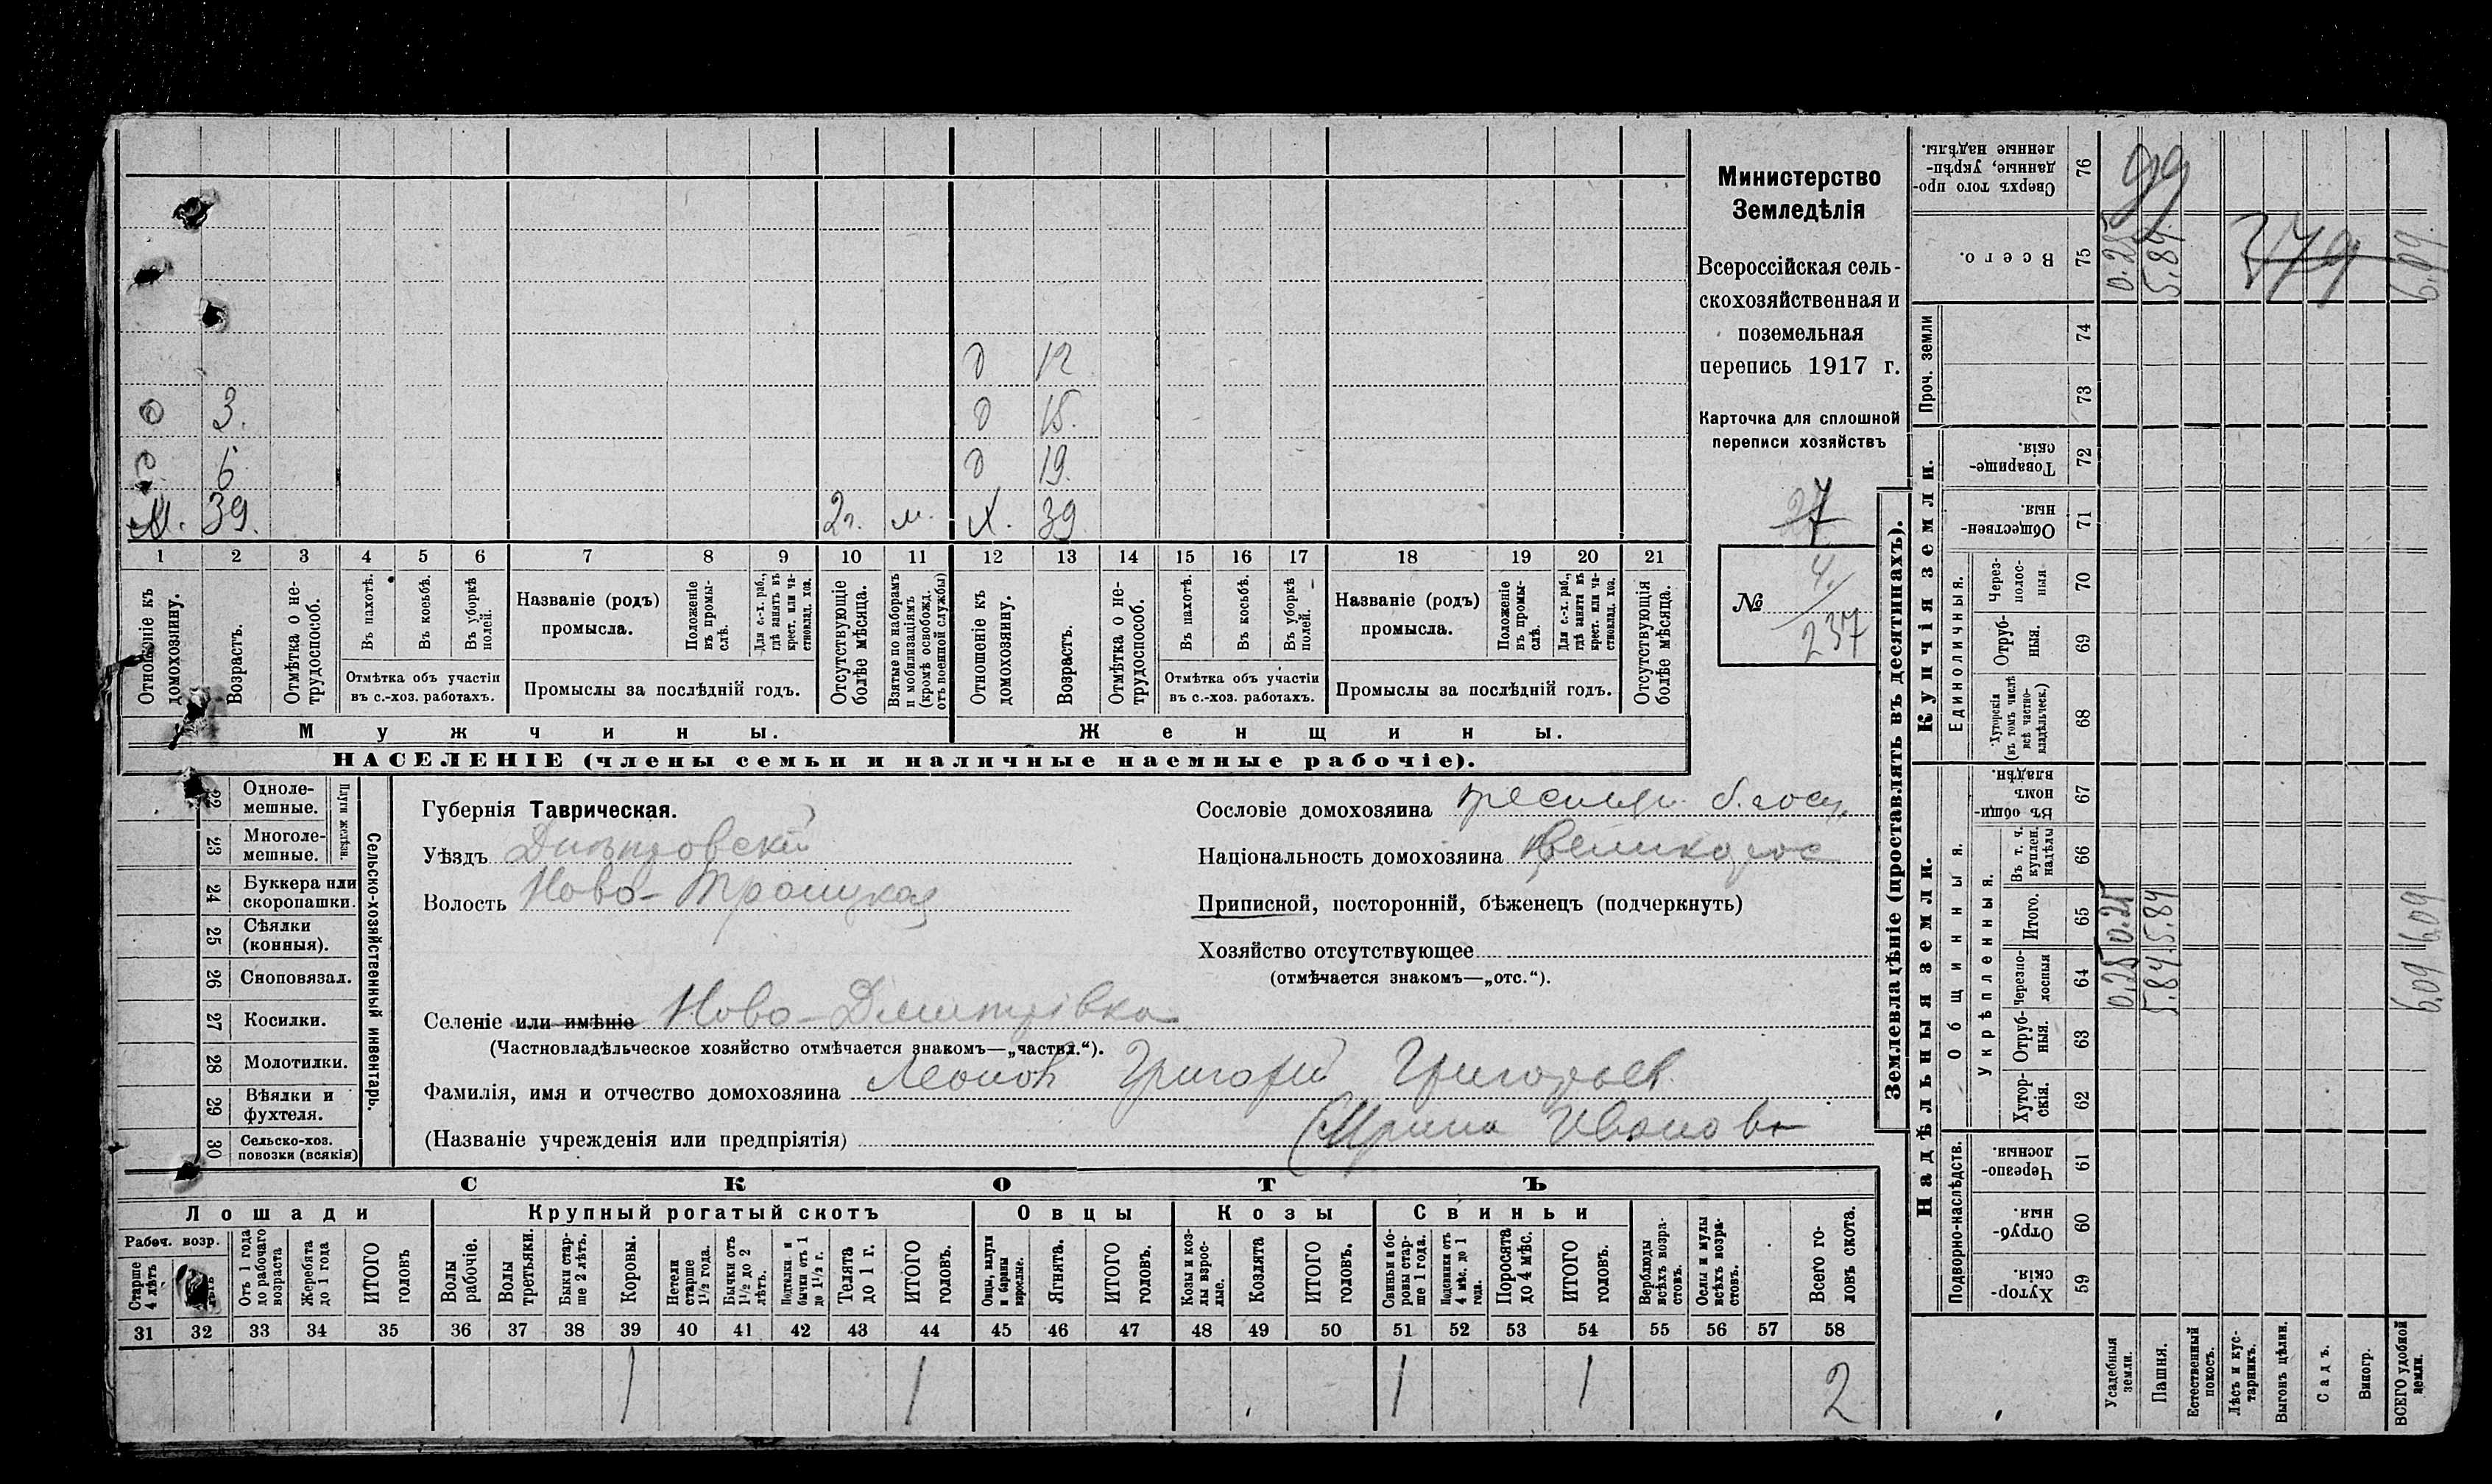 Министерство
Земледѣлія
Всероссійская сель-
скохозяйственная и
поземельная
перепись 1917 г.
Карточка для сплошной
переписи хозяйствъ
27
№ 4/237
д 12
о 3. д 15.
6 д 19.
М. 39. 2г. м. Х. 39
1 2 3 4 5 6 7 8 9 10 11 12 13 14 15 16 17 18 19 20 21
Отношеніе къ домохозяину.
Возрастъ.
Отмѣтка о не-трудоспособ.
Въ пахотѣ.
Въ косьбѣ.
Въ уборкѣ полей.
Отмѣтка объ участіи
въ с.-хоз. работахъ.
Названіе (родъ)
промысла.
Положеніе въ промы-слѣ.
Для с.-х. раб., гдѣ занятъ въ крест. или ча-стновлад. хоз.
Промыслы за послѣдній годъ.
Отсутствующіе болѣе мѣсяца.
Взятые по наборамъ и мобилизаціямъ (кромѣ освобожд. отъ военной службы)
Отношеніе къ домохозяину.
Возрастъ.
Отмѣтка о не-трудоспособ.
Въ пахотѣ.
Въ косьбѣ.
Въ уборкѣ полей.
Отмѣтка объ участіи
въ с.-хоз. работахъ.
Названіе (родъ)
промысла.
Положеніе въ промы-слѣ.
Для с.-х. раб., гдѣ занята въ крест. или ча-стновлад. хоз.
Промыслы за послѣдній годъ.
Отсутствующія болѣе мѣсяца.
Мужчины. Женщины.
НАСЕЛЕНІЕ (члены семьи и наличные наемные рабочіе).
22 Одноле-мешные.
23 Многоле-мешные.
Плуги желѣзн.
24 Буккера или скоропашки.
25 Сѣялки (конныя).
26 Сноповязал.
27 Косилки.
28 Молотилки.
29 Вѣялки и фухтеля.
30 Сельско-хоз. повозки (всякія)
Сельско-хозяйственный инвентарь.
Губернія Таврическая.
Уѣздъ Днѣпровскій
Волость Ново-Троицкая
Сословіе домохозяина б. госуд.
Національность домохозяина Великорос
Приписной, посторонній, бѣженецъ (подчеркнуть)
Хозяйство отсутствующее
(отмѣчается знакомъ—„отс.“).
Селеніе или имѣніе Ново-Дмитрівка
(Частновладѣльческое хозяйство отмѣчается знакомъ—„частвл.“).
Фамилія, имя и отчество домохозяина Григорій Григорьев
(Названіе учрежденія или предпріятія) (Ирина Иванова
СКОТЪ
Лошади Крупный рогатый скотъ Овцы Козы Свиньи
Рабоч. возр.
Старше 4 лѣтъ
Отъ 1 года до рабочаго возраста
Жеребята до 1 года
ИТОГО головъ
Волы рабочіе.
Волы третьяки.
Быки стар-ше 2 лѣтъ.
Коровы.
Нетели старше 1½ года.
Бычки отъ 1½ до 2 лѣтъ.
Подтелки и бычки отъ 1 до 1½ г.
Телята до 1 г.
ИТОГО головъ.
Овцы, валухи и бараны взрослые.
Ягнята.
ИТОГО головъ.
Козы и коз-лы взрос-лые.
Козлята
ИТОГО головъ.
Свиньи и бо-ровы стар-ше 1 года.
Подсвинки отъ 4 мѣс. до 1 года.
Поросята до 4 мѣс.
ИТОГО головъ.
Верблюды всѣхъ возра-стовъ.
Ослы и мулы всѣхъ возра-стовъ.
Всего го-ловъ скота.
31 32 33 34 35 36 37 38 39 40 41 42 43 44 45 46 47 48 49 50 51 52 53 54 55 56 57 58
1 1 1 1 2
Землевладѣніе (проставлять въ десятинахъ).
Надѣльныя земли. Купчія земли.
Подворно-наслѣдств. Общинныя. Единоличныя. Проч. земли
Укрѣпленныя.
Хутор-скія. 59
Отруб-ныя. 60
Черезпо-лосныя. 61
Хутор-скія. 62
Отруб-ныя. 63
Черезпо-лосныя 64 0.25 5.84 6,09
Итого. 65 0.25 5.84 6,09
Въ т. ч. куплен. надѣлы 66
Въ общи-номъ владѣн. 67
Хуторскія (въ томъ числѣ всѣ частно-владѣльческ.) 68
Отруб-ныя. 69
Через-полос-ныя 70
Обществен-ныя. 71
Товарище-скія. 72
73
74
Всего. 75 0.25 5.84. 379 6,09.
Сверхъ того про-данные, укрѣп-ленные надѣлы. 76 99
Усадебныя земли.
Пашня.
Естественный покосъ.
Лѣсъ и кус-тарникъ.
Выгонъ цѣлин.
Садъ.
Виногр.
ВСЕГО удобной земли.